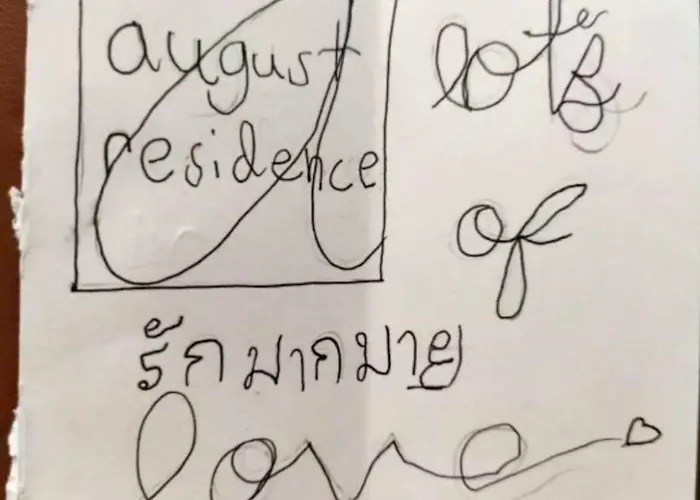 august
residence
lots
of
รักมากมาย
love